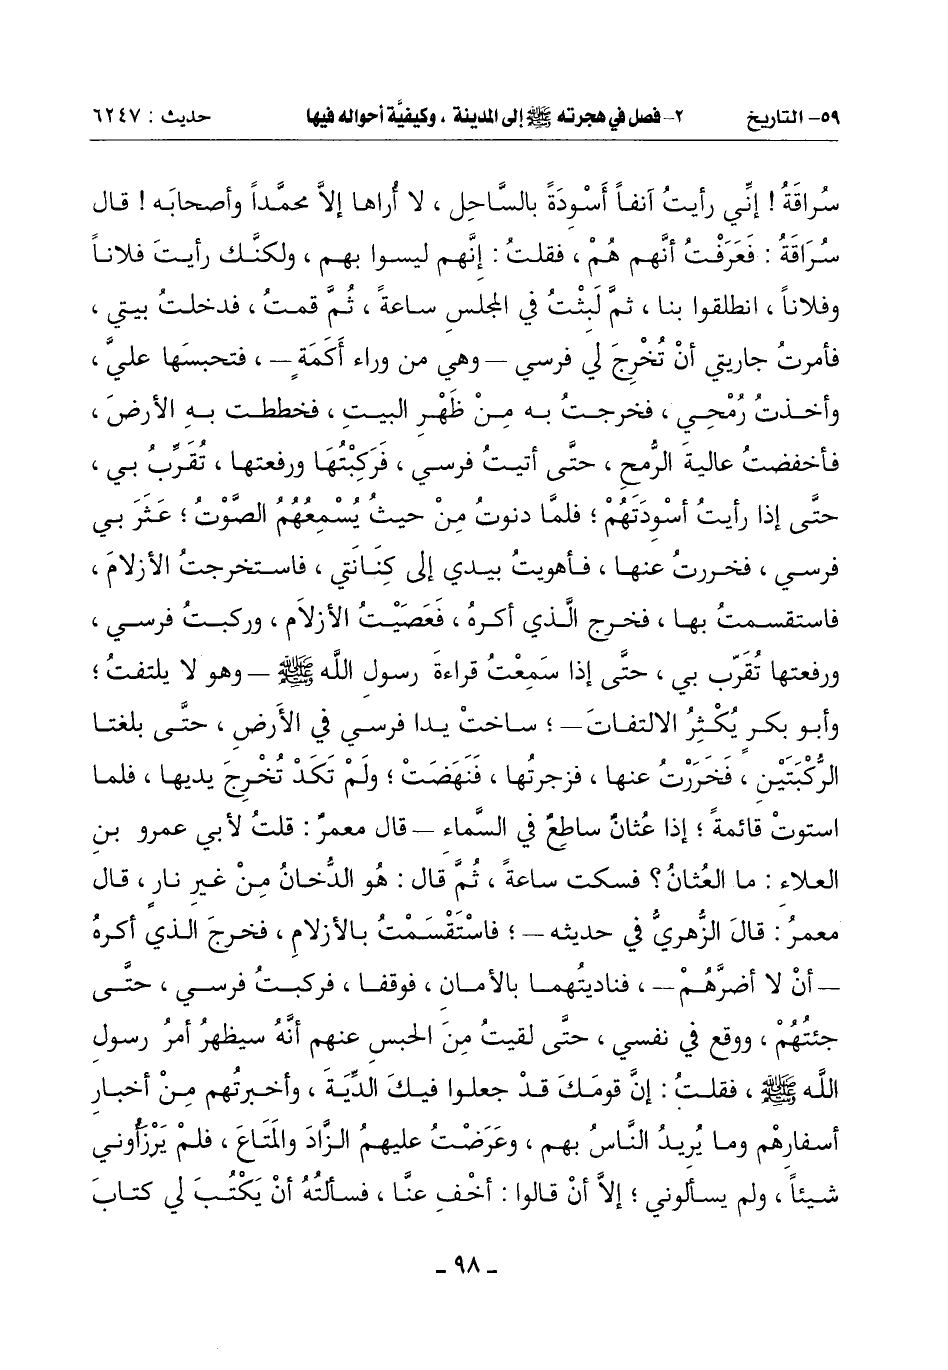 ٥٩- التاريخ ٢- فصل في هجرته ﷺ إلى المدينة ، وكيفيَّة أحواله فيها حديث : ٦٢٤٧
سُراقَةُ ! إنِّي رأيتُ آنفاً أَسْوِدَةً بالسَّاحلِ ، لا أُراها إلاَّ محمَّداً وأصحابَه ! قال
سُرَاقَةُ : فَعَرَفْتُ أنَّهم هُمْ ، فقلتُ : إنَّهم ليسوا بهم ، ولكنَّك رأيتَ فلاناً
وفلاناً ، انطلقوا بنا ، ثمَّ لَبِثْتُ في المجلسِ ساعةً ، ثُمَّ قمتُ ، فدخلتُ بيتي ،
فأمرتُ جاريتي أنْ تُخْرِجَ لي فرسي –وهي من وراء أَكَمَةٍ– ، فتحبسَها عليَّ ،
وأخذتُ رُمْحِي ، فخرجتُ به مِنْ ظَهْرِ البيتِ ، فخططت به الأرضَ ،
فأخفضتُ عاليةَ الرُّمحِ ، حتَّى أتيتُ فرسي ، فَرَكِبْتُهَا ورفعتها ، تُقَرِّبُ بي ،
حتَّى إذا رأيتُ أسْوِدَتَهُمْ ؛ فلمَّا دنوتُ مِنْ حيثُ يُسْمِعُهُمُ الصَّوْتُ ؛ عَثَرَ بي
فرسي ، فخررتُ عنها ، فأهويتُ بيدي إلى كِنَانَتي ، فاستخرجتُ الأزلامَ ،
فاستقسمتُ بها ، فخرج الَّذي أكرهُ ، فَعَصَيْتُ الأزلامَ ، وركبتُ فرسي ،
ورفعتها تُقَرِّب بي ، حتَّى إذا سَمِعْتُ قراءةَ رسول اللَّه ﷺ –وهو لا يلتفتُ ؛
وأبو بكرٍ يُكْثِرُ الالتفاتَ– ؛ ساختْ يدا فرسي في الأَرضِ ، حتَّى بلغتا
الرُّكْبَتَيْنِ ، فَخَرَرْتُ عنها ، فزجرتُها ، فَنَهَضَتْ ؛ ولَمْ تَكَدْ تُخْرِجَ يديها ، فلما
استوتْ قائمةً ؛ إذا عُثانٌ ساطعٌ في السَّماء –قال معمرٌ : قلتُ لأبي عمرو بن
العلاءِ : ما العُثانُ ؟ فسكت ساعةً ، ثُمَّ قال : هُو الدُّخانُ مِنْ غيرِ نارٍ ، قال
معمرُ : قالَ الزُّهريُّ في حديثه – ؛ فاسْتَقْسَمْتُ بالأزلامِ ، فخرجَ الذي أكرهُ
–أنْ لا أضرَّهُمْ– ، فناديتُهما بالأمانِ ، فوقفا ، فركبتُ فرسي ، حتَّى
جئتُهُمْ ، ووقع في نفسي ، حتَّى لقيتُ مِنَ الحبسِ عنهم أنَّهُ سيظهرُ أمرُ رسولِ
اللَّه ﷺ ، فقلتُ : إنَّ قومَكَ قدْ جعلوا فيكَ الدِّيَةَ ، وأخبرتُهم مِنْ أخبارِ
أسفارهْم وما يُريدُ النَّاسُ بهم ، وعَرَضْتُ عليهمُ الزَّادَ والمَتَاعَ ، فلمْ يَرْزَأُوني
شيئاً ، ولم يسألوني ؛ إلاَّ أنْ قالوا : أخْفِ عنَّا ، فسألتُهُ أنْ يَكْتُبَ لي كتابَ
ـ ٩٨ ـ